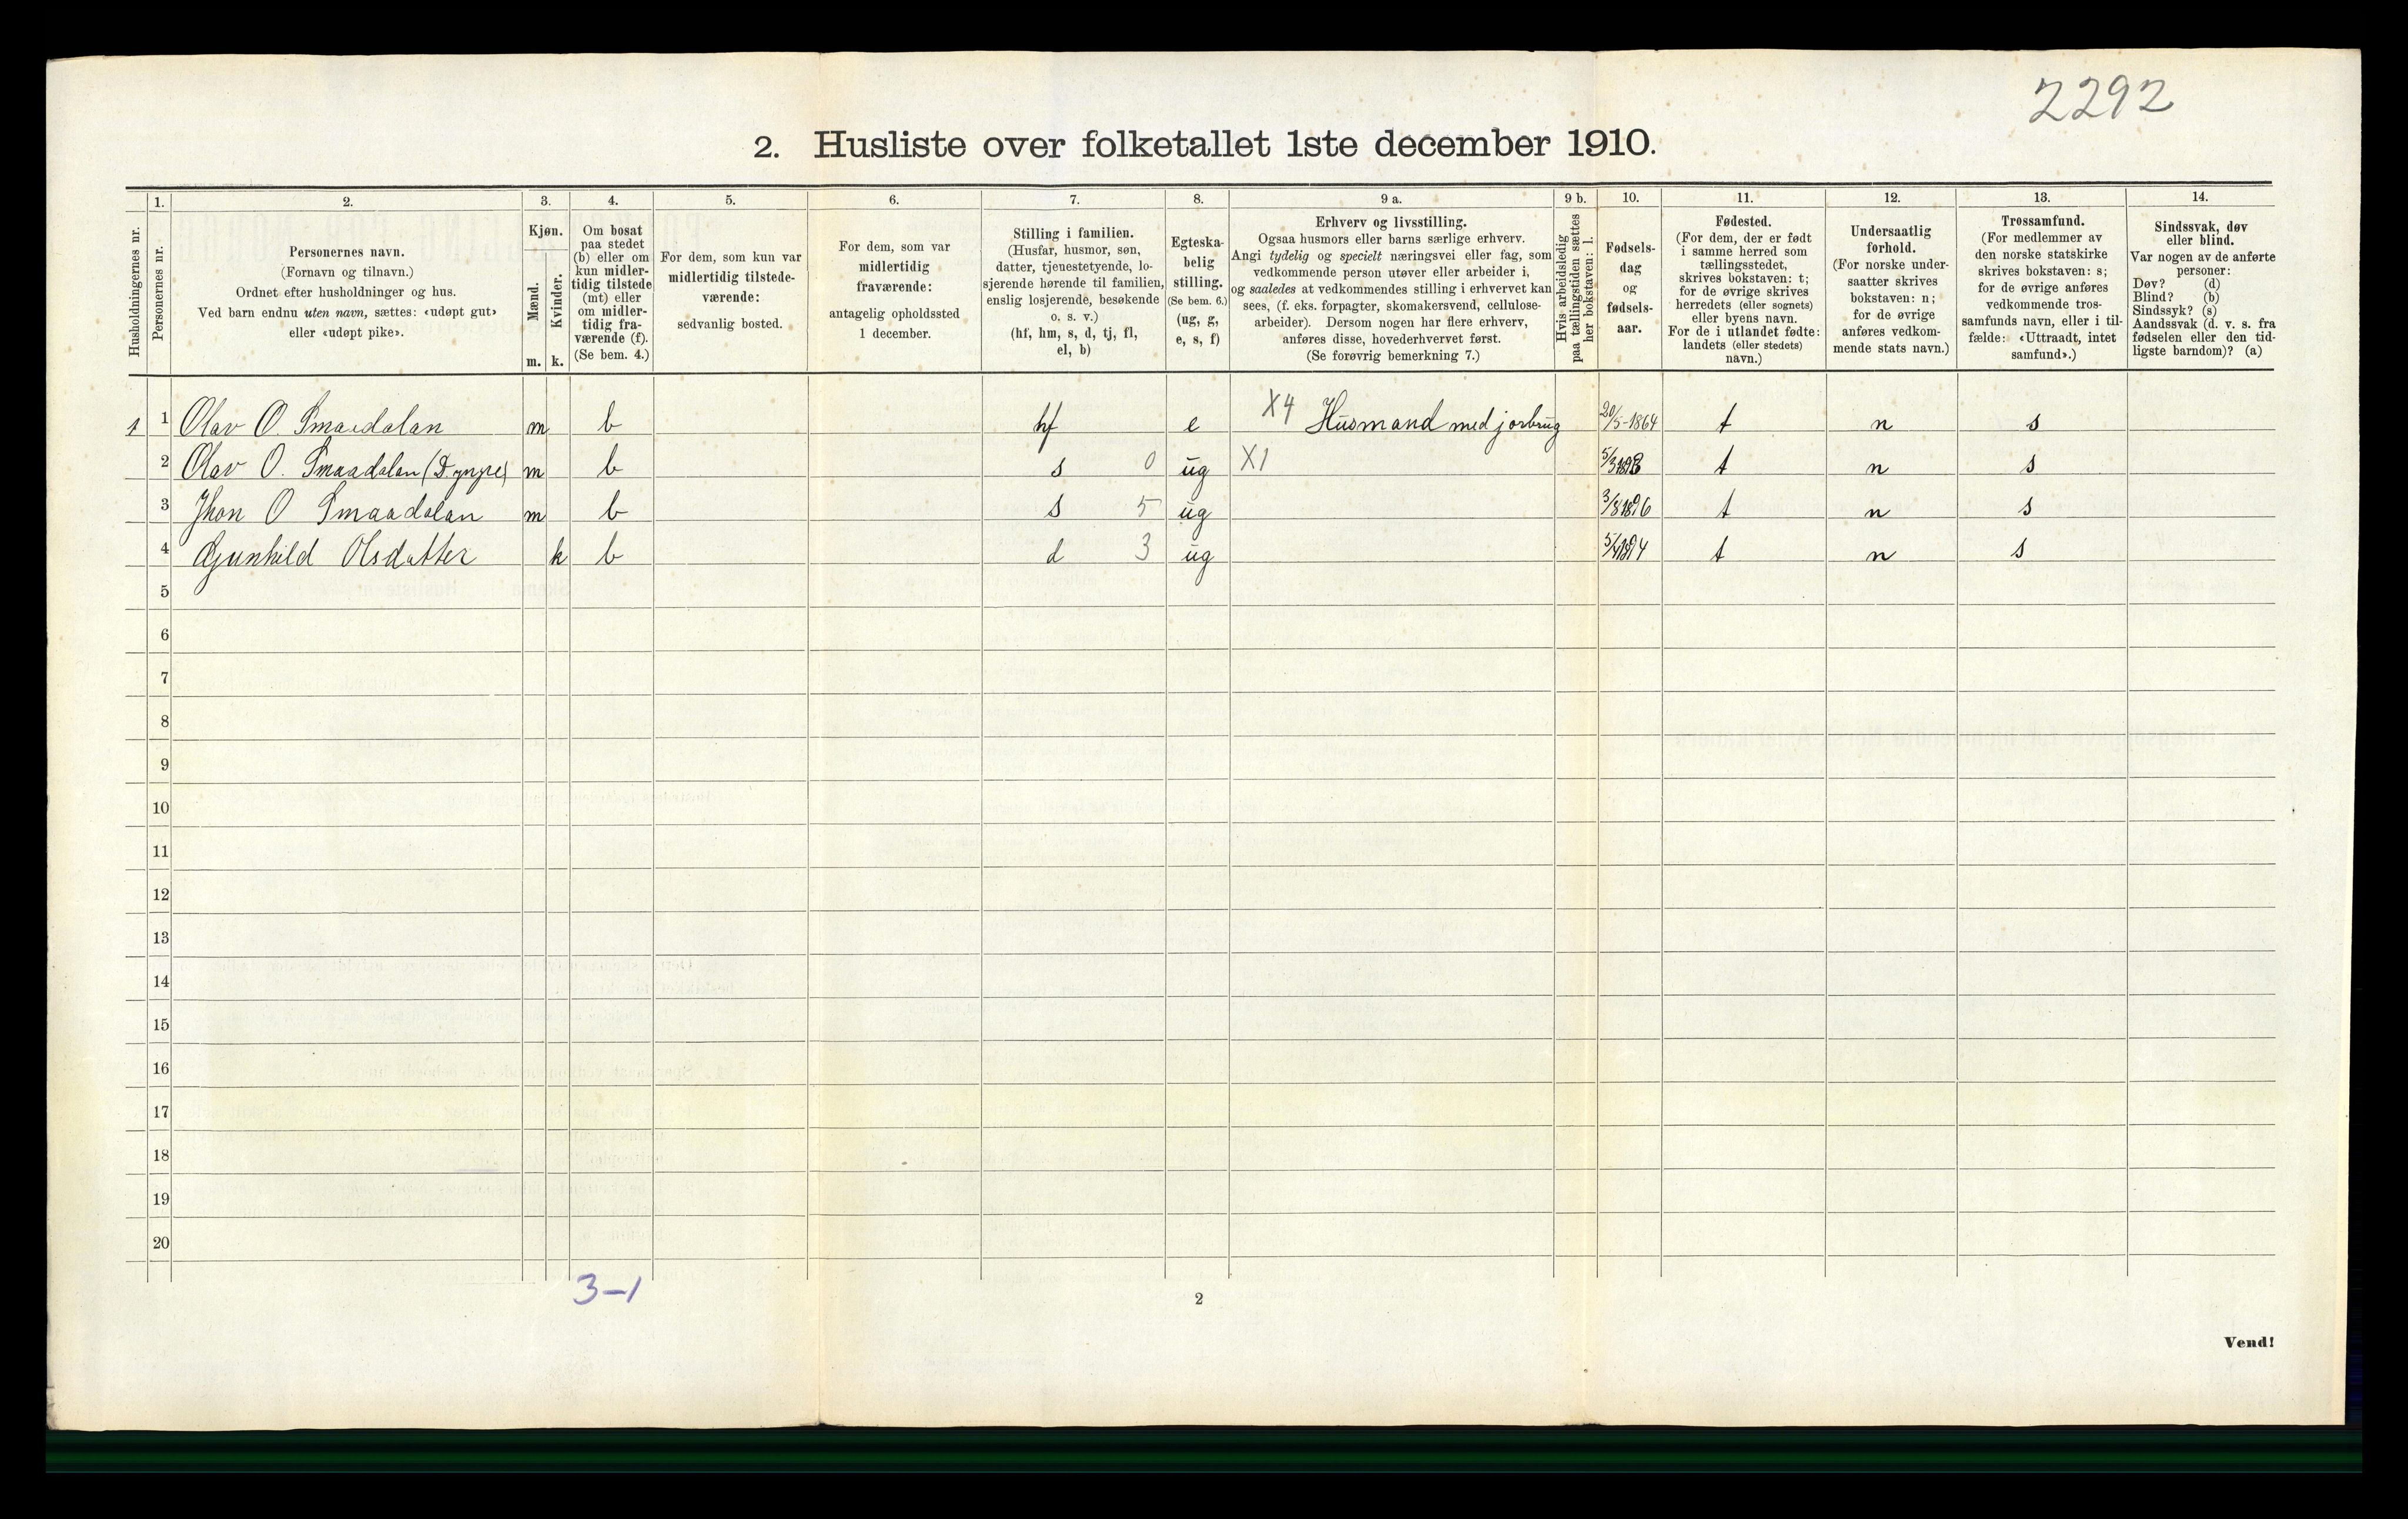 2292
2. Husliste over folketallet 1ste december 1910.
Husholdningernes nr.
1.
Personernes nr.
2.
Personernes navn.
(Fornavn og tilnavn.)
Ordnet efter husholdninger og hus.
Ved barn endnu uten navn, sættes: «udøpt gut»
eller «udøpt pike».
3.
Kjøn.
Mænd.
Kvinder.
m. k.
4.
Om bosat
paa stedet
(b) eller om
kun midler-
tidig tilstede
(mt) eller
om midler-
tidig fra-
værende (f).
(Se bem. 4.)
5.
For dem, som kun var
midlertidig tilstede-
værende:
sedvanlig bosted.
6.
For dem, som var
midlertidig
fraværende:
antagelig opholdssted
1 december.
7.
Stilling i familien.
(Husfar, husmor, søn,
datter, tjenestetyende, lo-
sjerende hørende til familien,
enslig losjerende, besøkende
o. s. v.)
(hf, hm, s, d, tj, fl,
el, b)
8.
Egteska-
belig
stilling.
(Se bem. 6.)
(ug, g,
e, s, f)
9 a.
Erhverv og livsstilling.
Ogsaa husmors eller barns særlige erhverv.
Angi tydelig og specielt næringsvei eller fag, som
vedkommende person utøver eller arbeider i,
og saaledes at vedkommendes stilling i erhvervet kan
sees, (f. eks. forpagter, skomakersvend, cellulose-
arbeider). Dersom nogen har flere erhverv,
anføres disse, hovederhvervet først.
(Se forøvrig bemerkning 7.)
9 b.
Hvis arbeidsledig
paa tællingstiden sættes
her bokstaven: l.
10.
Fødsels-
dag
og
fødsels-
aar.
11.
Fødested.
(For dem, der er født
i samme herred som
tællingsstedet,
skrives bokstaven: t;
for de øvrige skrives
herredets (eller sognets)
eller byens navn.
For de i utlandet fødte:
landets (eller stedets)
navn.)
12.
Undersaatlig
forhold.
(For norske under-
saatter skrives
bokstaven: n;
for de øvrige
anføres vedkom-
mende stats navn.)
13.
Trossamfund.
(For medlemmer av
den norske statskirke
skrives bokstaven: s;
for de øvrige anføres
vedkommende tros-
samfunds navn, eller i til-
fælde: «Uttraadt, intet
samfund».)
14.
Sindssvak, døv
eller blind.
Var nogen av de anførte
personer:
Døv? (d)
Blind? (b)
Sindssyk? (s)
Aandssvak (d. v. s. fra
fødselen eller den tid-
ligste barndom)? (a)
1 1 Olav O. Smaadalan m b hf e X4 Husmand med jorbrug 20/5-1864 t n s
2 Olav O. Smaadalan (D. yngre) m b s 0 ug X1 5/3 t n s
3 Jhon O Smaadalan m b s 5 ug 3/8 1896 t n s
4 Gjunhild Olsdatter k b d 3 ug 5/4 1894 t n s
5
6
7
8
9
10
11
12
13
14
15
16
17
18
19
20
3-1
2
Vend!